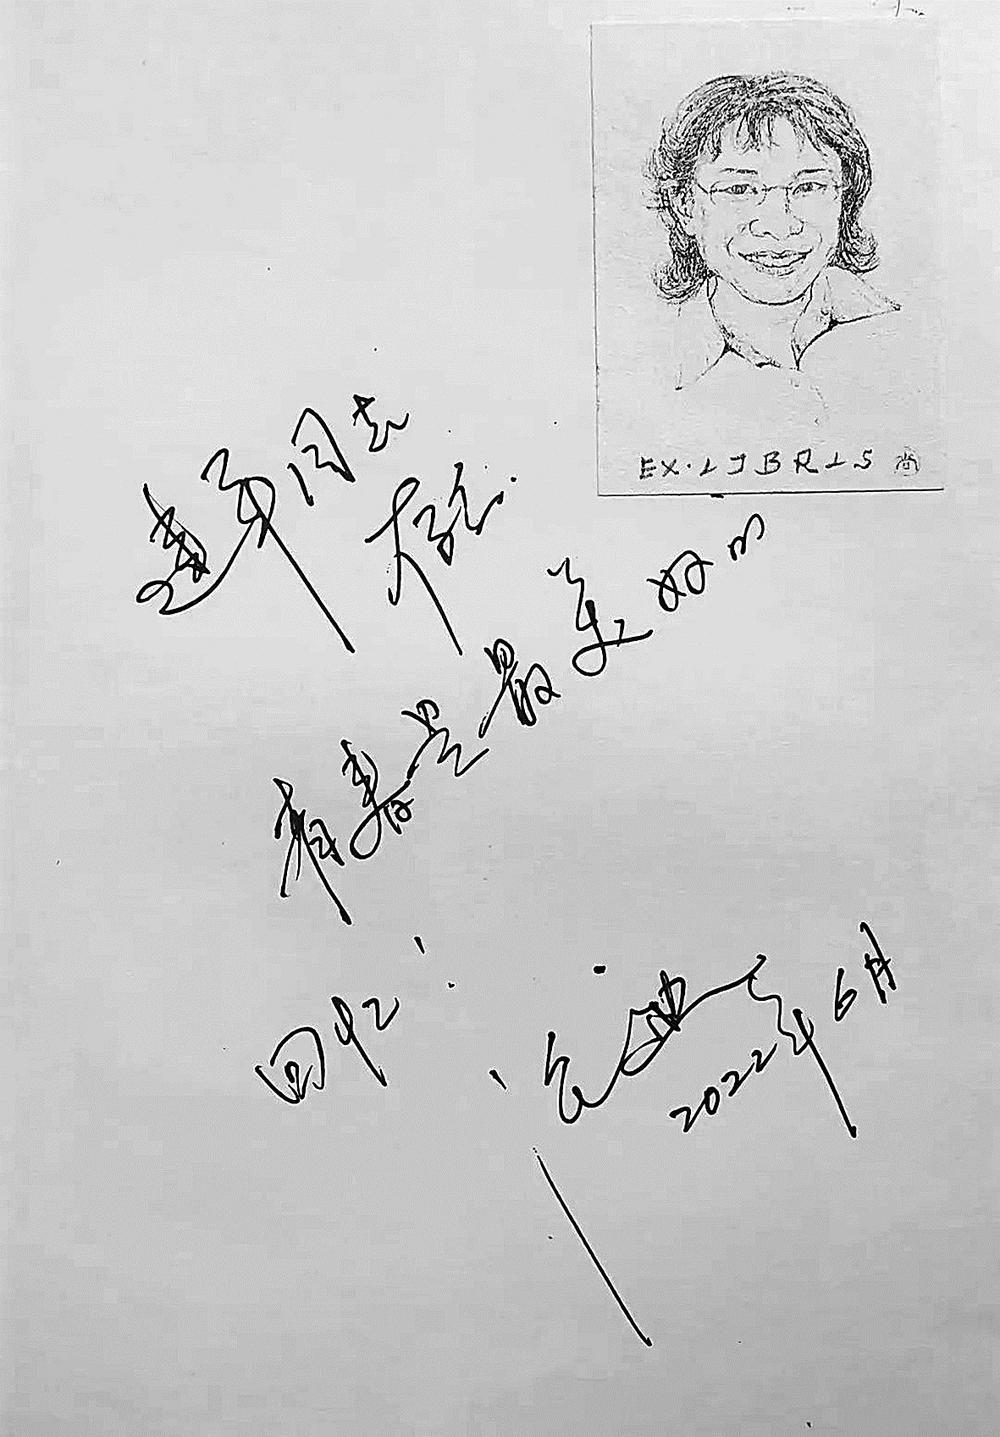 EX·LIBRIS 尚
建军同志
存念.
青春是最美好的
回忆!
2022年6月